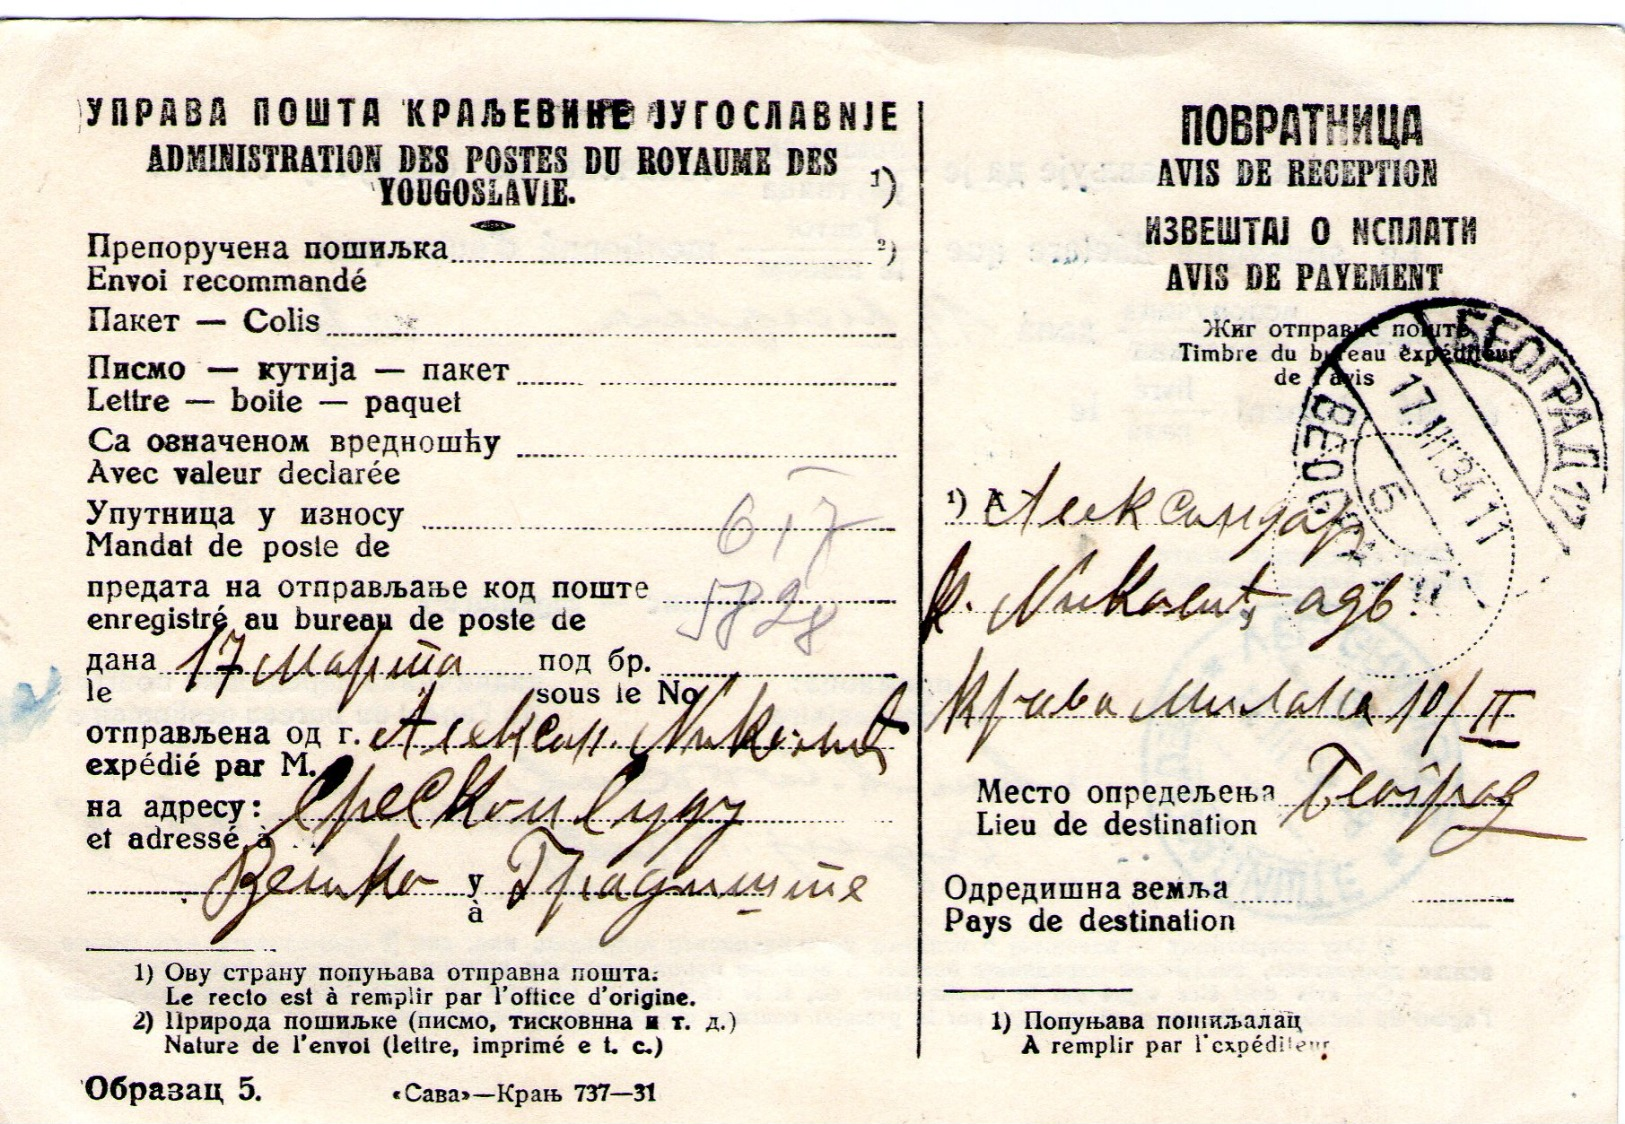 УПРАВА ПОШТА КРАЉЕВИНЕ ЈУГОСЛАВИЈЕ
ADMINISTRATION DES POSTES DU ROYAUME DES
YOUGOSLAVIE.
1)
Препоручена пошиљка 2)
Envoi recommandé
Пакет — Colis
Писмо — кутија — пакет
Lettre — boite — paquet
Са означеном вредношћу
Avec valeur declarée
Упутница у износу
Mandat de poste de
617
предата на отправљање код поште
enregistré au bureau de poste de
дана 17 марта под бр.
le sous le No
отправљена од г. Алексан. Николић
expédié par M.
на адресу: Среском Суду
et adressé à
Велико у Градиште
à
1) Ову страну попуњава отправна пошта.
Le recto est à remplir par l'office d'origine.
2) Природа пошиљке (писмо, тисковнна и т. д.)
Nature de l'envoi (lettre, imprimé e t. c.)
Образац 5.
«Сава»—Крањ 737—31
ПОВРАТНИЦА
AVIS DE RÉCEPTION
ИЗВЕШТАЈ О ИСПЛАТИ
AVIS DE PAYEMENT
Жиг отправне поште
Timbre du bureau expéditeur
de l'avis
БЕОГРАД 2
17.III.34 11
BEOGRAD
1) Александар
Николић, адв.
Краља Милана 10/II
Место опредељења Београд
Lieu de destination
Одредишна земља
Pays de destination
1) Попуњава пошиљалац
A remplir par l'expéditeur.